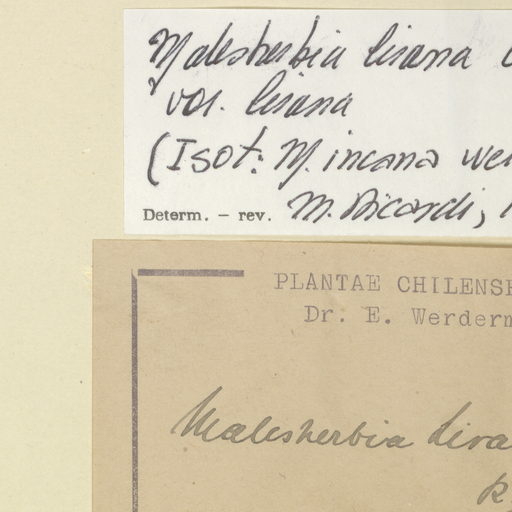 Malesherbia lirana
var. lirana
(Isot: M. incana
Determ. - rev. M. Ricardi,
PLANTAE CHILENS
Dr. E. Werderm
Malesherbia